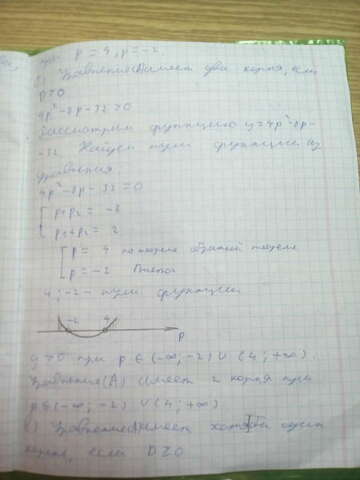 при p = 4, p = -2.
) Уравнение(A)имеет два корня, если
D>0
4p²-8p-32>0
Рассмотрим функцию y=4p²-8p-
-32. Найдем нули функции из
уравнения:
4p²-8p-32=0
p₁p₂ = -8
p₁+p₂ = 2
p = 4 по теореме обратной теореме
p = -2 Виета
4; -2 - нули функции
-2 4 p
y>0 при p ∈ (-∞; -2) ∪ (4; +∞).
Уравнение(A) имеет 2 корня при
p∈(-∞; -2) ∪ (4; +∞)
) Уравнение(A)имеет хотя бы один
корень, если D≥0